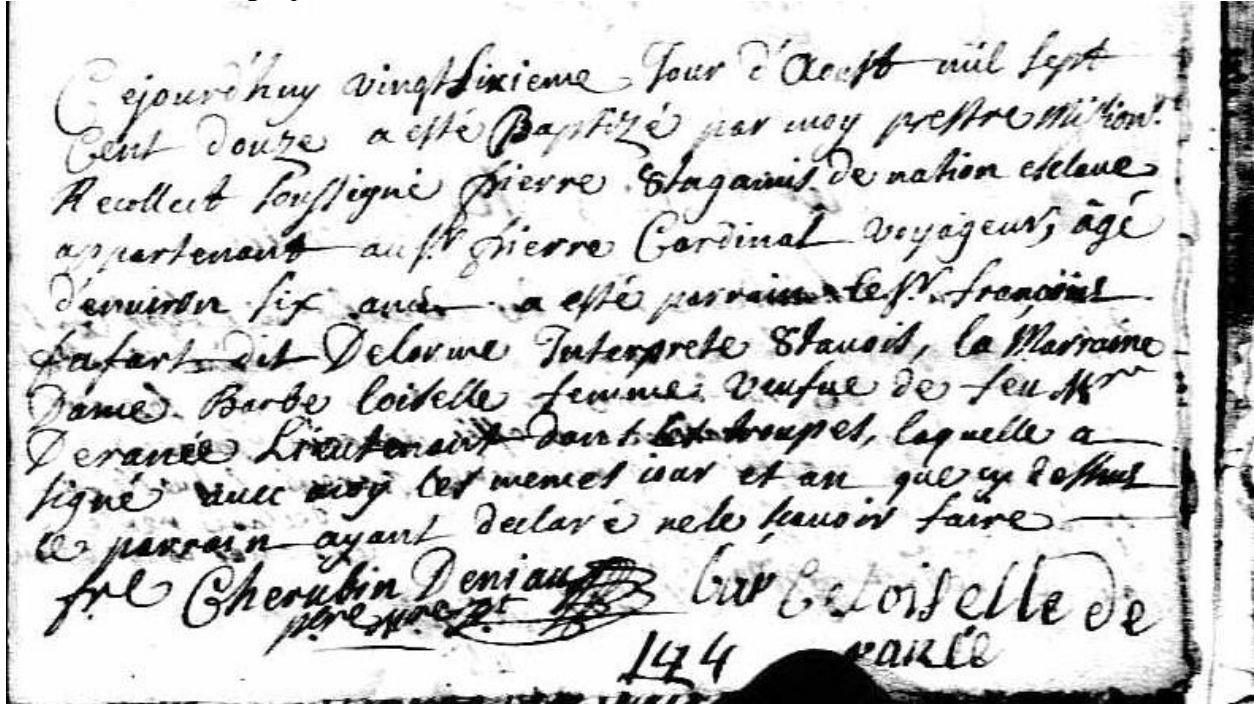 Cejourd'huy vingtsixieme Jour d'Aoust mil sept
Cent douze a esté Baptizé par moy prestre Mission.re
Recollect soussigné pierre 8tagamis de nation esclave
appartenant au Sr. pierre Cardinal voyageur, âgé
d'environ six ans a esté parrain le Sr. françois
fafart dit Delorme Interprete 8tauois, la Marraine
Dame Barbe loiselle femme veufue de feu Mr
Deranée Lieutenant dans les troupes, laquelle a
signé avec moy les memes iour et an que cy dessus
le parrain ayant declaré ne le scauoir faire
fre Cherubin Deniau
barbe loiselle de
ranée
144